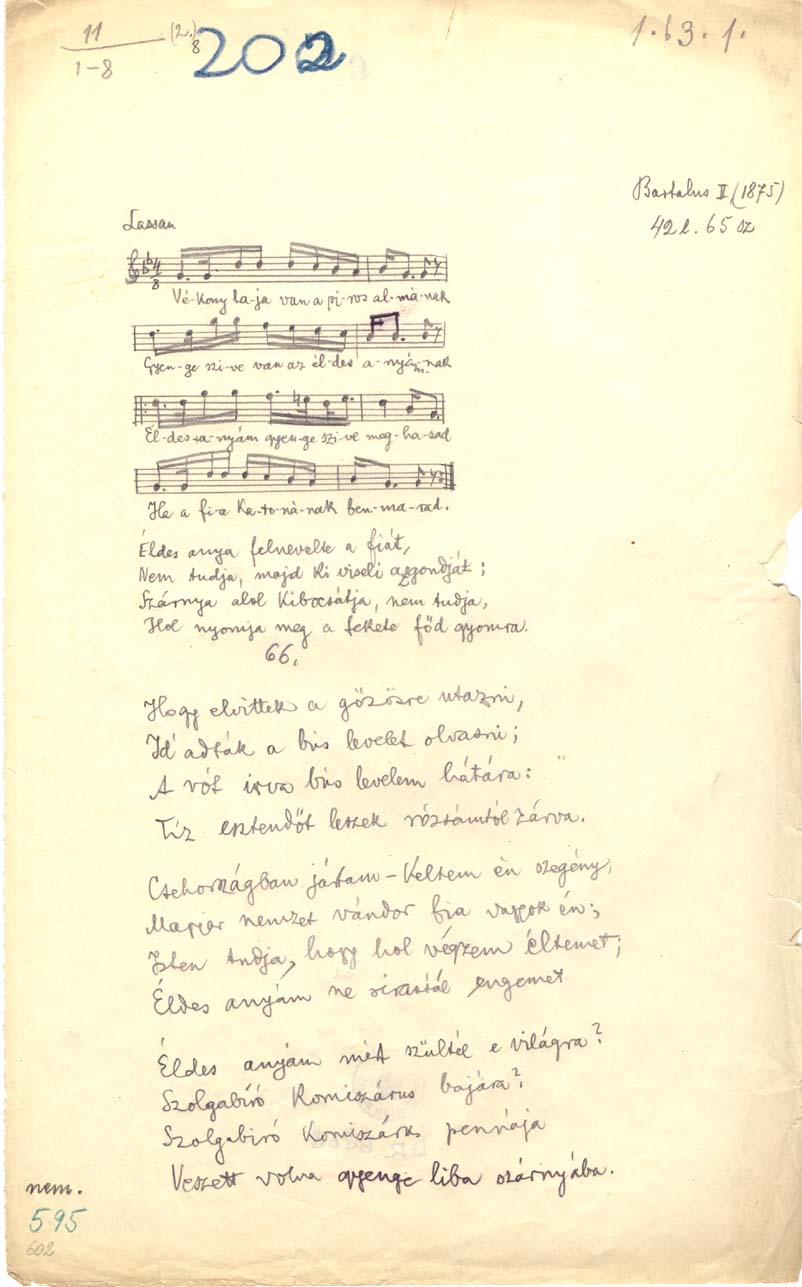 11
1-8
(2.)
8
202
1.63.1.
Bartalus II (1875)
42 l. 65 sz
Lassan
4
8
Vé-kony ha-ja van a pi-ros al-má-nak
Gyen-ge szi-ve van az él-des a-nyám-nak
Él-des-a-nyám gyen-ge szi-ve meg-ha-sad
Ha a fi-a Ka-to-ná-nak ben-ma-rad.
Éldes anya felnevelte a fiát,
Nem tudja, majd ki viseli a gondját;
Szárnya alol kibocsátja, nem tudja,
Hol nyomja meg a fekete föd gyomra.
66.
Hogy elvittek a gőzösre utazni,
Id' adták a bús levelet olvasni;
A vót irva bús levelem hátára:
Tíz esztendőt leszek rózsámtól zárva.
Csehországban jártam-keltem én szegény,
Magyar nemzet vándor fia vagyok én;
Isten tudja, hogy hol végzem éltemet;
Éldes anyám ne sirastál engemet
Éldes anyám mért szültél e világra?
Szolgabíró Komiszárus bajára?
Szolgabiró Komiszárus pennája
Veszett volna gyenge liba szárnyába.
nem.
595
602